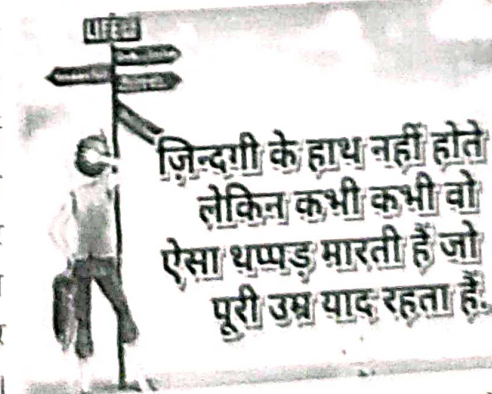 LIFE
ज़िन्दगी के हाथ नहीं होते
लेकिन कभी कभी वो
ऐसा थप्पड़ मारती हैं जो
पूरी उम्र याद रहता हैं.